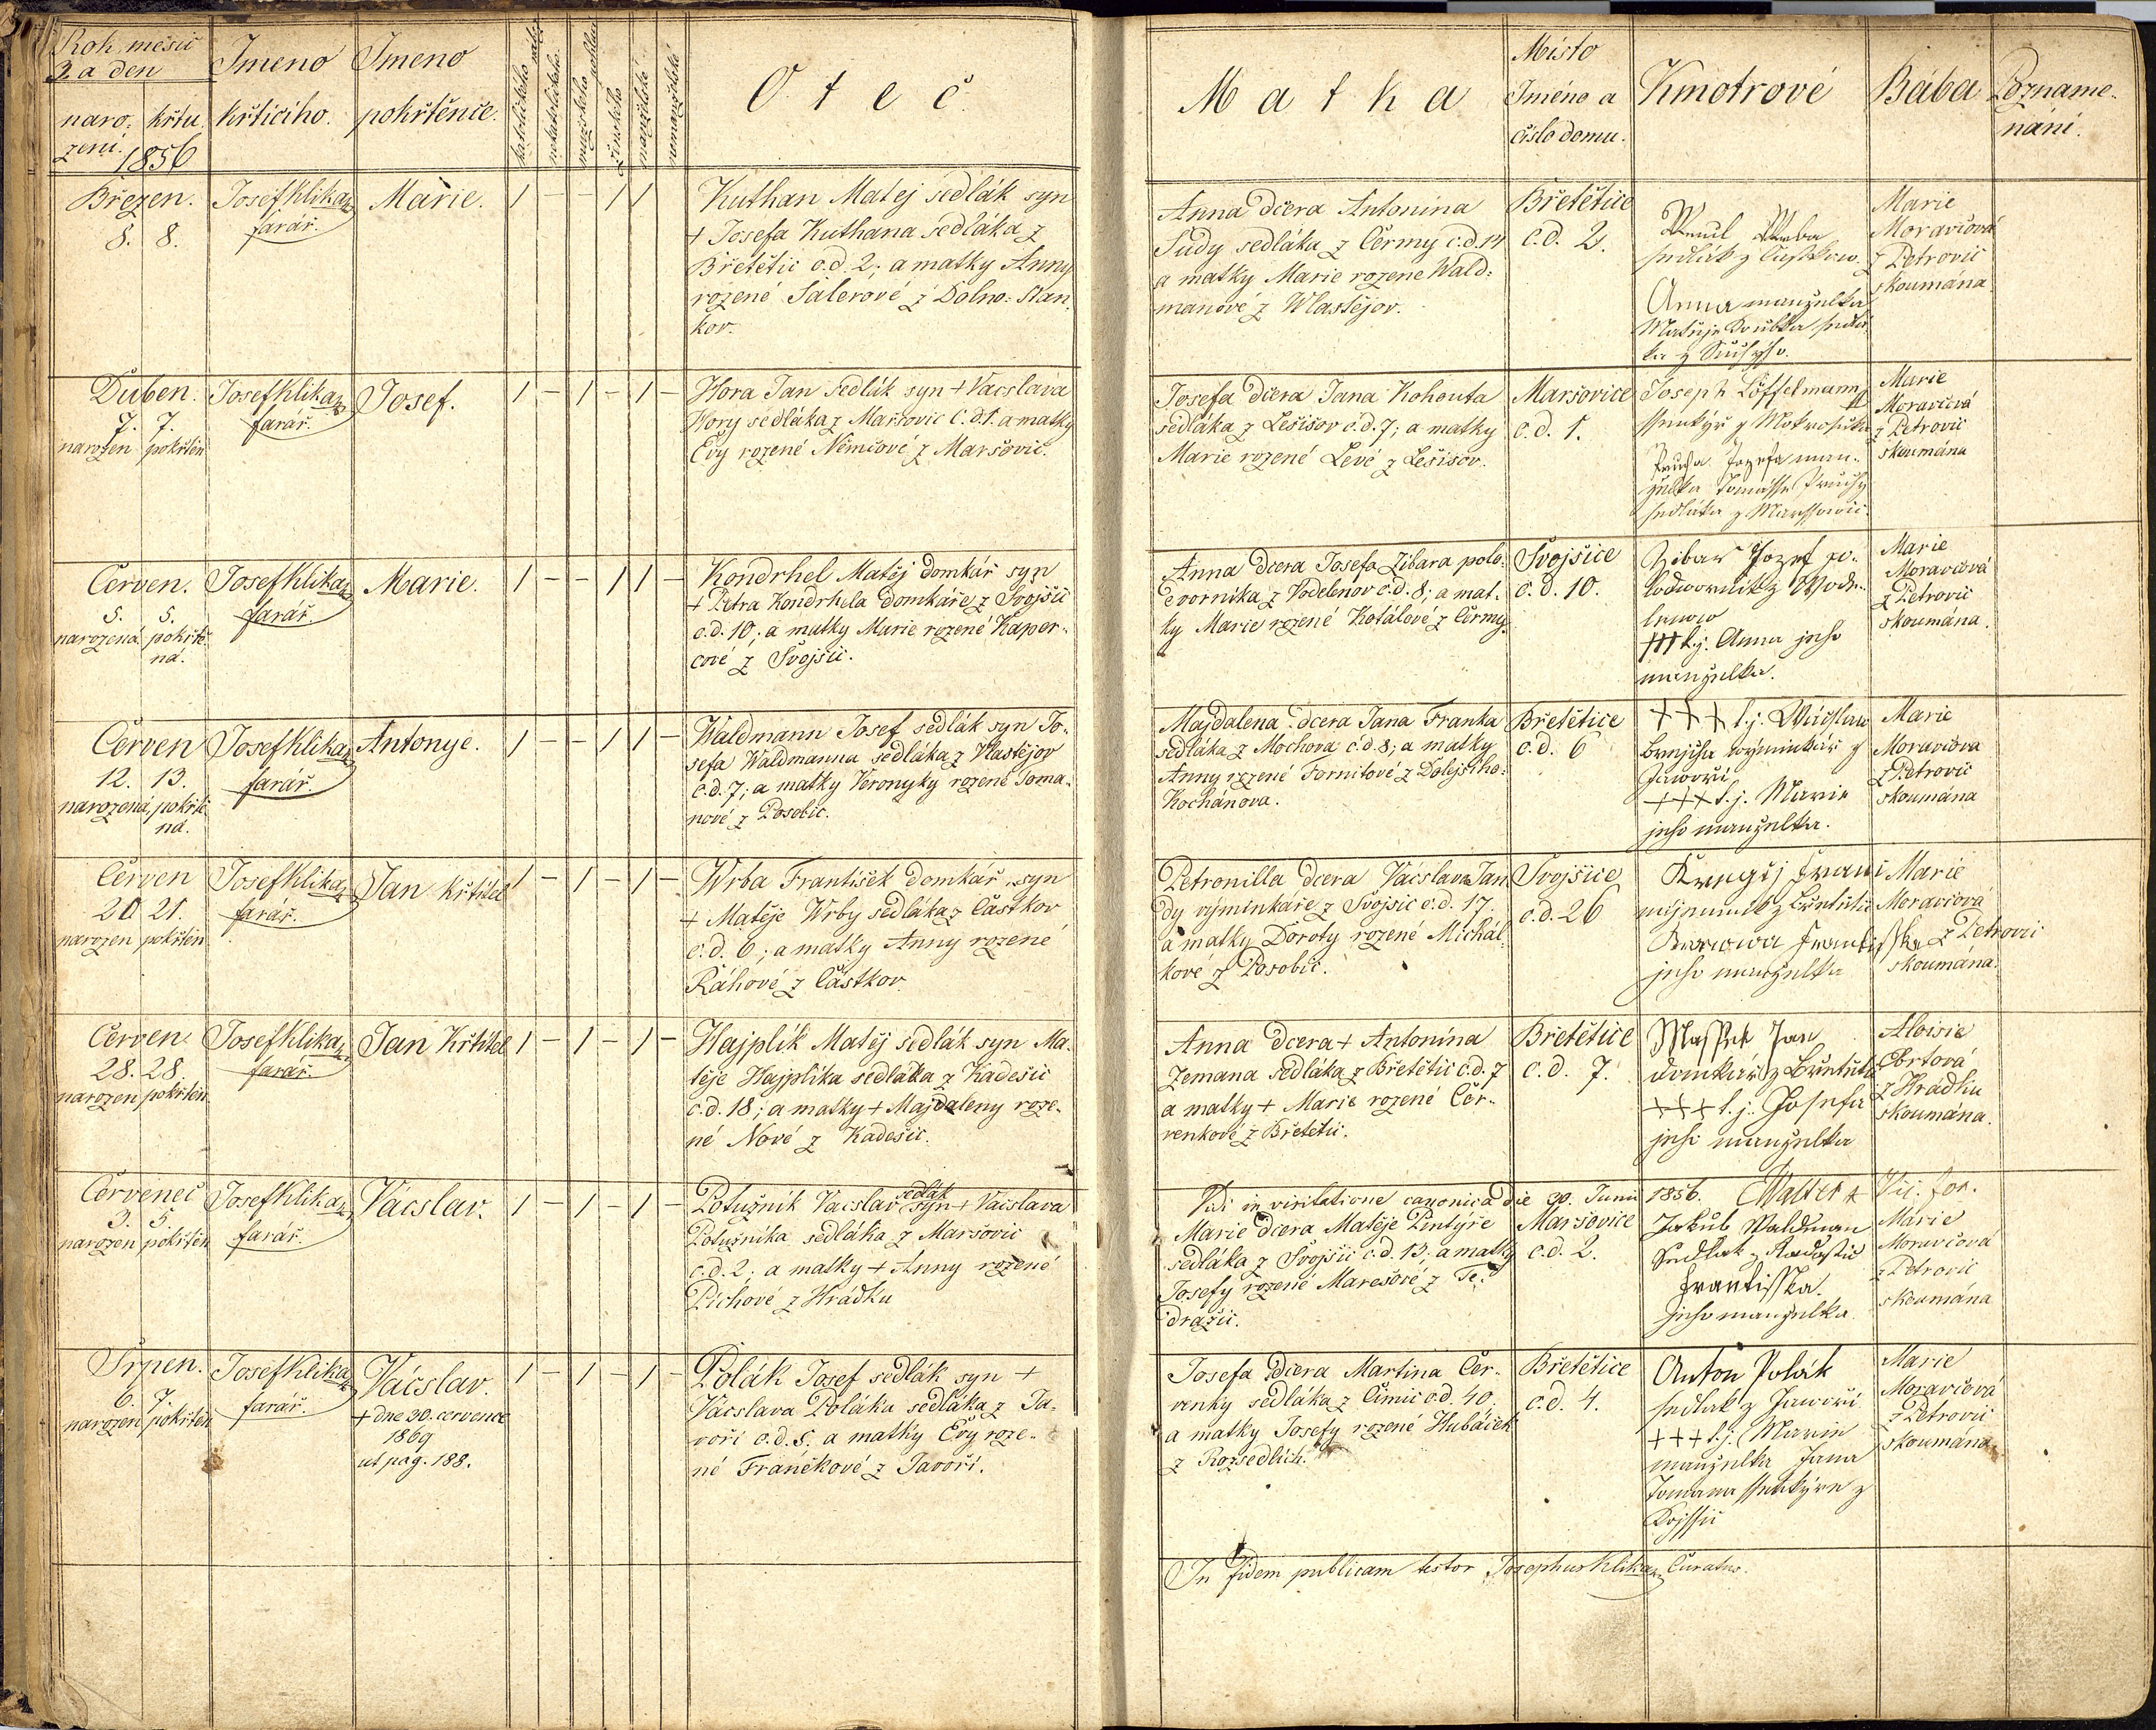 Rok, měsíc
a den
naro-
zení.
křtu
1856
Jmeno
křtícího.
Jmeno
pokřtěnce.
katolického
nekatolického
mužského
ženského
manželské
nemanželské
Otec
Matka
Místo
Jméno a
číslo domu.
Kmotrové
Bába
Pozname-
nání.
Březen.
8. 8.
Josef Klika
farář.
Marie.
1 – – 1 1
Kuthan Matej sedlák syn
+ Josefa Kuthana sedláka z
Břetětic č.d. 2; a matky Anny
rozené Salerové z Dolno-Stan-
kov.
Anna dcera Antonina
Sudy sedláka z Čermy č.d. 14
a matky Marie rozene Wald-
manové z Wlastějov.
Břetětice
č.d. 2.
sedlák z
Anna manželka
Matěje sedlá-
ka z
Marie
Moravcová
z Petrovic
skoumána
Duben.
7. 7.
narozen pokřtěn
Josef Klika
farář.
Josef.
1 – 1 – 1 –
Hora Jan sedlák syn + Vácslava
Hory sedláka z Maršovic č.d. 1. a matky
Evy rozené Němcové z Maršovic.
Josefa dcera Jana Kohouta
sedláka z Lešišov č.d. 7; a matky
Marie rozené Levé z Lešišov.
Maršovice
č.d. 1.
Joseph Löffelmann
ssenkýř z Mokrosuk
Prucha Jozefa man-
želka Tomásse Pruchy
sedláka z Marssowic.
Marie
Moravcová
z Petrovic
skoumána
Červen.
5. 5.
narozená pokřtě-
ná.
Josef Klika
farář.
Marie.
1 – – 1 1 –
Kondrhel Matěj domkář syn
+ Petra Kondrhela domkáře z Svojšic
č.d. 10; a matky Marie rozené Kaper-
cové z Svojšic.
Anna dcera Josefa Zibara polo-
dvorníka z Vodelenov č.d. 8; a mat-
ky Marie rozené Kotálové z Čermy.
Svojšice
č.d. 10.
Zibar Jozef po-
lodwornik z Wode-
lenow
+++ t.j. Anna jeho
manželka.
Marie
Moravcová
z Petrovic
skoumána.
Červen
12. 13.
narozená, pokřtě-
ná.
Josef Klika
farář.
Antonye.
1 – – 1 1 –
Waldmann Josef sedlák syn Jo-
sefa Waldmanna sedláka z Vlastějov
č.d. 7; a matky Veronyky rozené Toma-
nové z Posobic.
Majdalena dcera Jana Franka
sedláka z Mochova č.d. 8; a matky
Anny rozené Fornitové z Dolejšího-
Kochánova.
Břetětice
č.d. 6
+++ t.j. Wácslaw
wýminkář z
Jaworčí
+++ t.j. Marie
jeho manželka.
Marie
Moravcova
z Petrovic
skoumána
Červen
20 21.
narozen pokřtěn
Josef Klika
farář.
Jan Křtitel
1 – 1 – 1 –
Wrba František domkář, syn
+ Matěje Wrby sedláka z Částkov
č.d. 6; a matky Anny rozené
Ráhové z Částkov.
Petronilla dcera Vácslava Jan-
dy výminkáře z Svojšic č.d. 17.
a matky Doroty rozené Michal-
kové z Posobic.
Svojšice
č.d. 26
nájemník z Břetětic
Františka
jeho manželka
Marie
Moravcová
z Petrovic
skoumána.
Červen.
28. 28.
narozen pokřtěn
Josef Klika
farář.
Jan Křtitel
1 – 1 – 1 –
Hajplík Matěj sedlák syn Ma-
těje Hajplíka sedláka z Kadešic
č.d. 18; a matky + Majdaleny roze-
né Nové z Kadešic.
Anna dcera + Antonína
Zemana sedláka z Břetětic č.d. 7
a matky + Marie rozené Čer-
venkové z Břetětic.
Břetětice
č.d. 7.
Massek Jan
domkář z Břetětic
+++ t.j. Josefa
jeho manželka
Aloisie
Obrtová
z Hrádku
skoumána.
Červenec
3. 5.
narozen pokřtěn
Josef Klika
farář.
Vácslav.
1 – 1 – 1 –
Potužník Vacslav sedlák syn + Vacslava
Potužníka sedláka z Maršovic
č.d. 2; a matky + Anny rozené
Pichové z Hrádku
Vidi in visitatione canonica die 30. Junii 1856. Walter Vic. for.
Marie dcera Matěje Pintýře
sedláka z Svojšic č.d. 13; a matky
Josefy rozené Marešové z Te-
dražic.
Maršovice
č.d. 2.
Jakub Waldman
Sedlak z
Frantisska
jeho manželka
Marie
Moravcová
z Petrovic
skoumána
Srpen.
6. 7.
narozen pokřtěn
Josef Klika
farář.
Vácslav.
+ dne 30. července
1869
ut pag. 188.
1 – 1 – 1 –
Polák Josef sedlák syn +
Vácslava Poláka sedláka z Ja-
voří č.d. 8. a matky Evy roze-
né Franěkové z Javoří.
Josefa dcera Martina Čer-
venky sedláka z Čimic č.d. 40;
a matky Josefy rozené Hubáček
z Rozsedlich.
Břetětice
č.d. 4.
Anton Polák
sedlak z Jaworí
+++ t.j. Marie
manželka Jana
Tomana ssenkýře z
Marie
Moravcová
z Petrovic
skoumána
In fidem publicam testor Josephus Klika, Curatus.